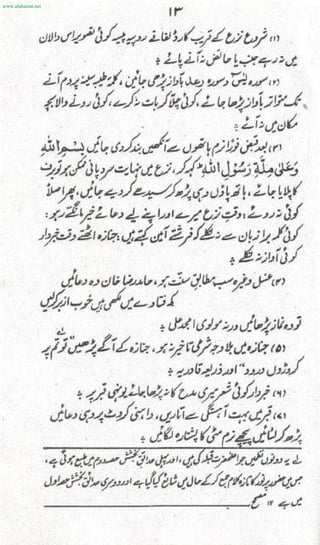 www.alahazrat.net
۱۳
(۱) شروع نزع کے قریب کارڈ لفافے روپیہ پیسہ کوئی تصویر اس دالان
میں نہ رہے جنب یا حائض نہ آنے پائے :
(۲) سورہ یٰسٓ و سورہ رعد بآواز پڑھی جائیں، کلمہ طیبہ سینہ پر دم آنے
تک متواتر بآواز پڑھا جائے، کوئی چلا کر بات نہ کرے، کوئی رونے والا بچہ
مکان میں نہ آئے :
(۳) بعد قبض فوراً نرم ہاتھوں سے آنکھیں بند کر دی جائیں بِسْمِ اللّٰہِ
وَعَلٰی مِلَّۃِ رَسُوْلِ اللّٰہِ کہہ کر، نزع میں نہایت سرد پانی ممکن ہو تو برف
کا پلایا جائے، ہاتھ پاؤں وہی پڑھ کر سیدھے کر دیے جائیں، پھر اصلاً
کوئی نہ روئے : وقتِ نزع میرے اور اپنے لیے دعائے خیر مانگتے رہو :
کوئی کلمہ برا زبان سے نہ نکلے کہ فرشتے آمین کہتے ہیں : جنازہ اٹھتے وقت خبردار
کوئی آواز نہ نکلے :
(۴) غسل وغیرہ سب مطابق سنت ہو، حامد رضا خان وہ دعائیں
کہ فتاوے میں لکھی ہیں خوب ازبر کر لیں
تو وہ نماز پڑھائیں ورنہ مولوی امجد علی :
(۵) جنازہ میں بلا وجہ شرعی تاخیر نہ ہو، جنازہ کے آگے پڑھیں "تو تم پر
کروڑوں درود" اور ذریعۂ قادریہ :
(۶) خبردار کوئی شعر میری مدح کا نہ پڑھا جائے یونہی قبر پر :
(۷) قبر میں بہت آہستگی سے اتاریں، داہنی کروٹ پر وہی دعائیں
پڑھ کر لٹائیں پیچھے نرم مٹی کا پشتارہ لگائیں :
لے یہ دونوں نظمیں جو اعلیٰحضرت قبلہ کی ہیں، اور پہلی حدائق بخشش حصہ دوم میں طبع ہوئی ہے،
میں ہے ۱۲ مصحح